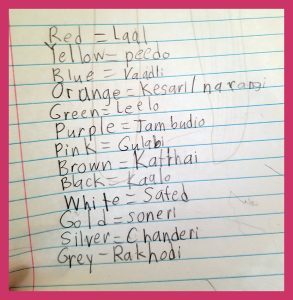 Red = Laal
Yellow = peedo
Blue = Vaadli
Orange = Kesari/narangi
Green = Leelo
Purple = Jambudio
Pink = Gulabi
Brown = Katthai
Black = Kaalo
White = Safed
Gold = soneri
Silver = Chanderi
Grey - Rakhodi